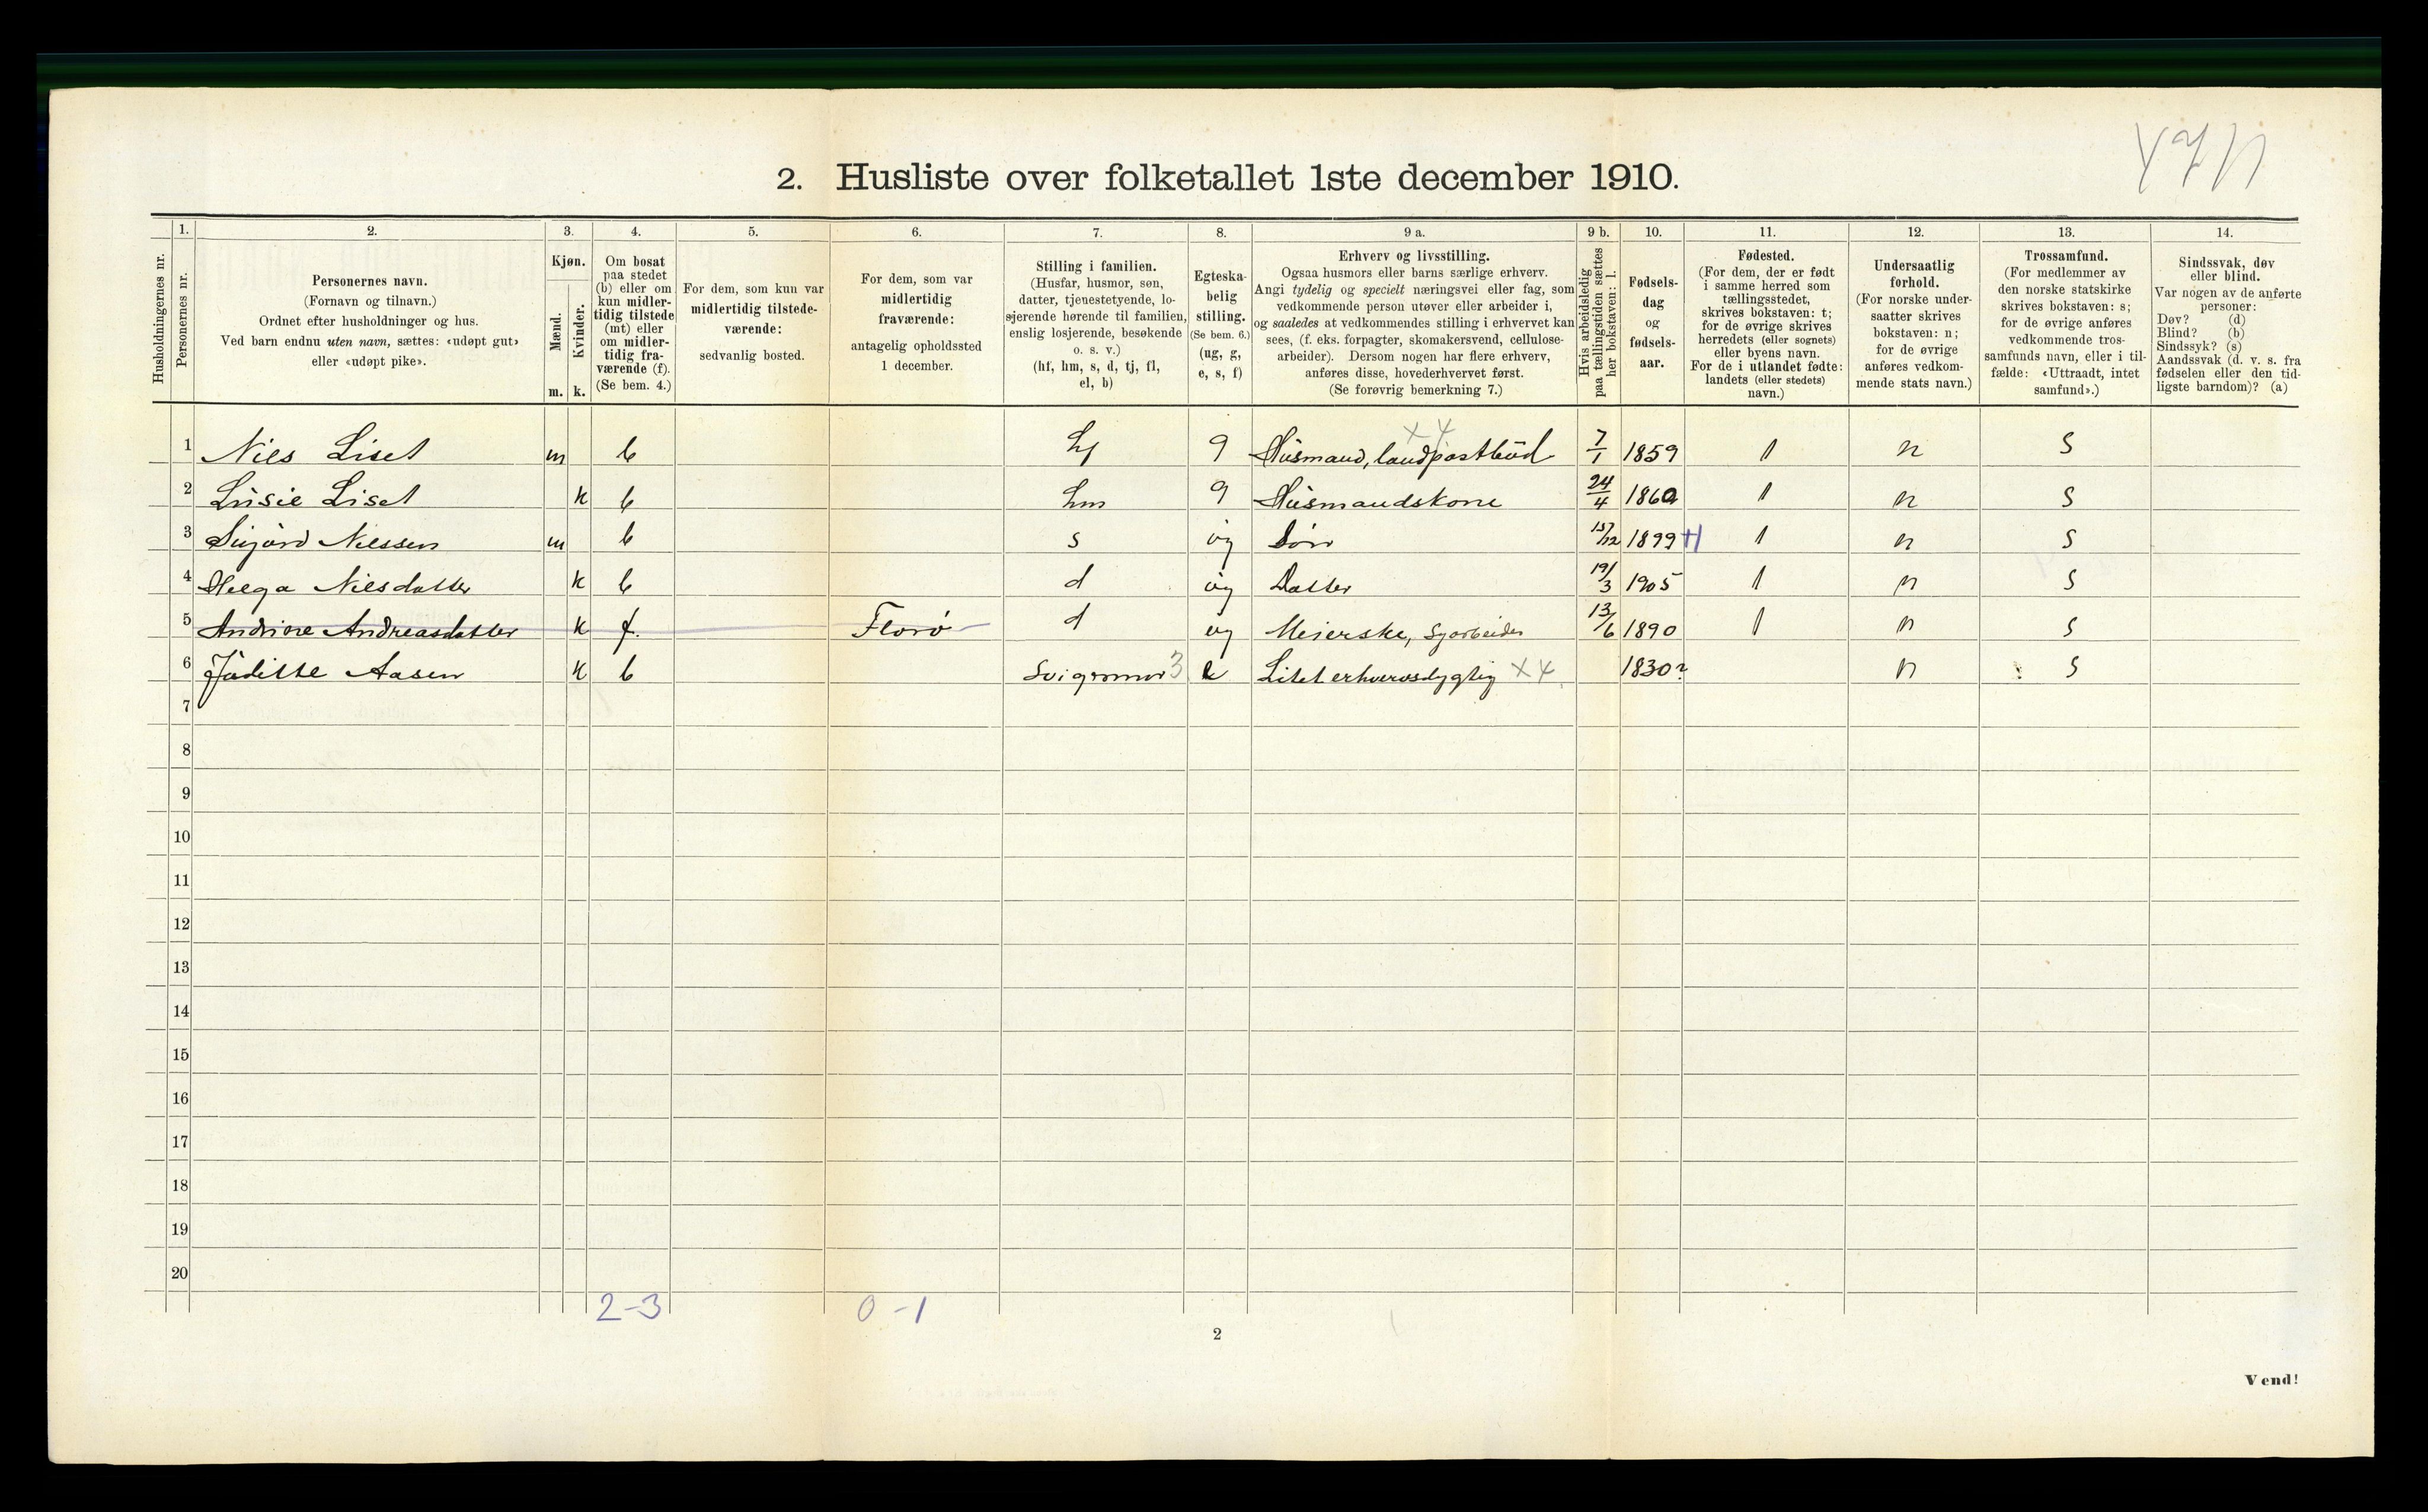 2. Husliste over folketallet 1ste december 1910.
1. 2. 3. 4. 5. 6. 7. 8. 9 a. 9 b. 10. 11. 12. 13. 14.
Husholdningernes nr.
Personernes nr.
Personernes navn.
(Fornavn og tilnavn.)
Ordnet efter husholdninger og hus.
Ved barn endnu uten navn, sættes: «udøpt gut»
eller «udøpt pike».
Kjøn.
Mænd.
m.
Kvinder.
k.
Om bosat
paa stedet
(b) eller om
kun midler-
tidig tilstede
(mt) eller
om midler-
tidig fra-
værende (f).
(Se bem. 4.)
For dem, som kun var
midlertidig tilstede-
værende:
sedvanlig bosted.
For dem, som var
midlertidig
fraværende:
antagelig opholdssted
1 december.
Stilling i familien.
(Husfar, husmor, søn,
datter, tjenestetyende, lo-
sjerende hørende til familien,
enslig losjerende, besøkende
o. s. v.)
(hf, hm, s, d, tj, fl,
el, b)
Egteska-
belig
stilling.
(Se bem. 6.)
(ug, g,
e, s, f)
Erhverv og livsstilling.
Ogsaa husmors eller barns særlige erhverv.
Angi tydelig og specielt næringsvei eller fag, som
vedkommende person utøver eller arbeider i,
og saaledes at vedkommendes stilling i erhvervet kan
sees, (f. eks. forpagter, skomakersvend, cellulose-
arbeider). Dersom nogen har flere erhverv,
anføres disse, hovederhvervet først.
(Se forøvrig bemerkning 7.)
Hvis arbeidsledig
paa tællingstiden sættes
her bokstaven: l.
Fødsels-
dag
og
fødsels-
aar.
Fødested.
(For dem, der er født
i samme herred som
tællingsstedet,
skrives bokstaven: t;
for de øvrige skrives
herredets (eller sognets)
eller byens navn.
For de i utlandet fødte:
landets (eller stedets)
navn.)
Undersaatlig
forhold.
(For norske under-
saatter skrives
bokstaven: n;
for de øvrige
anføres vedkom-
mende stats navn.)
Trossamfund.
(For medlemmer av
den norske statskirke
skrives bokstaven: s;
for de øvrige anføres
vedkommende tros-
samfunds navn, eller i til-
fælde: «Uttraadt, intet
samfund».)
Sindssvak, døv
eller blind.
Var nogen av de anførte
personer:
Døv? (d)
Blind? (b)
Sindssyk? (s)
Aandssvak (d. v. s. fra
fødselen eller den tid-
ligste barndom)? (a)
x 4
1 Nils Liset m b hf g Husmand, landpostbud 7/1 1859 t n s
2 Lusie Liset k b hm g Husmandskone 24/4 1860 t n s
3 Sigurd Nilssen m b s ug Søn 15/12 1899 t n s
4 Helga Nilsdatter k b d ug Datter 19/3 1905 t n s
5 Andrine Andreasdatter k f. Florø d ug Meierske, Syarbeider 13/6 1890 t n s
6 Juditte Aasen k b Svigermor 3 e Litet erhvervsdygtig x 4 1830? n s
7
8
9
10
11
12
13
14
15
16
17
18
19
20
2-3 0-1
2
Vend!